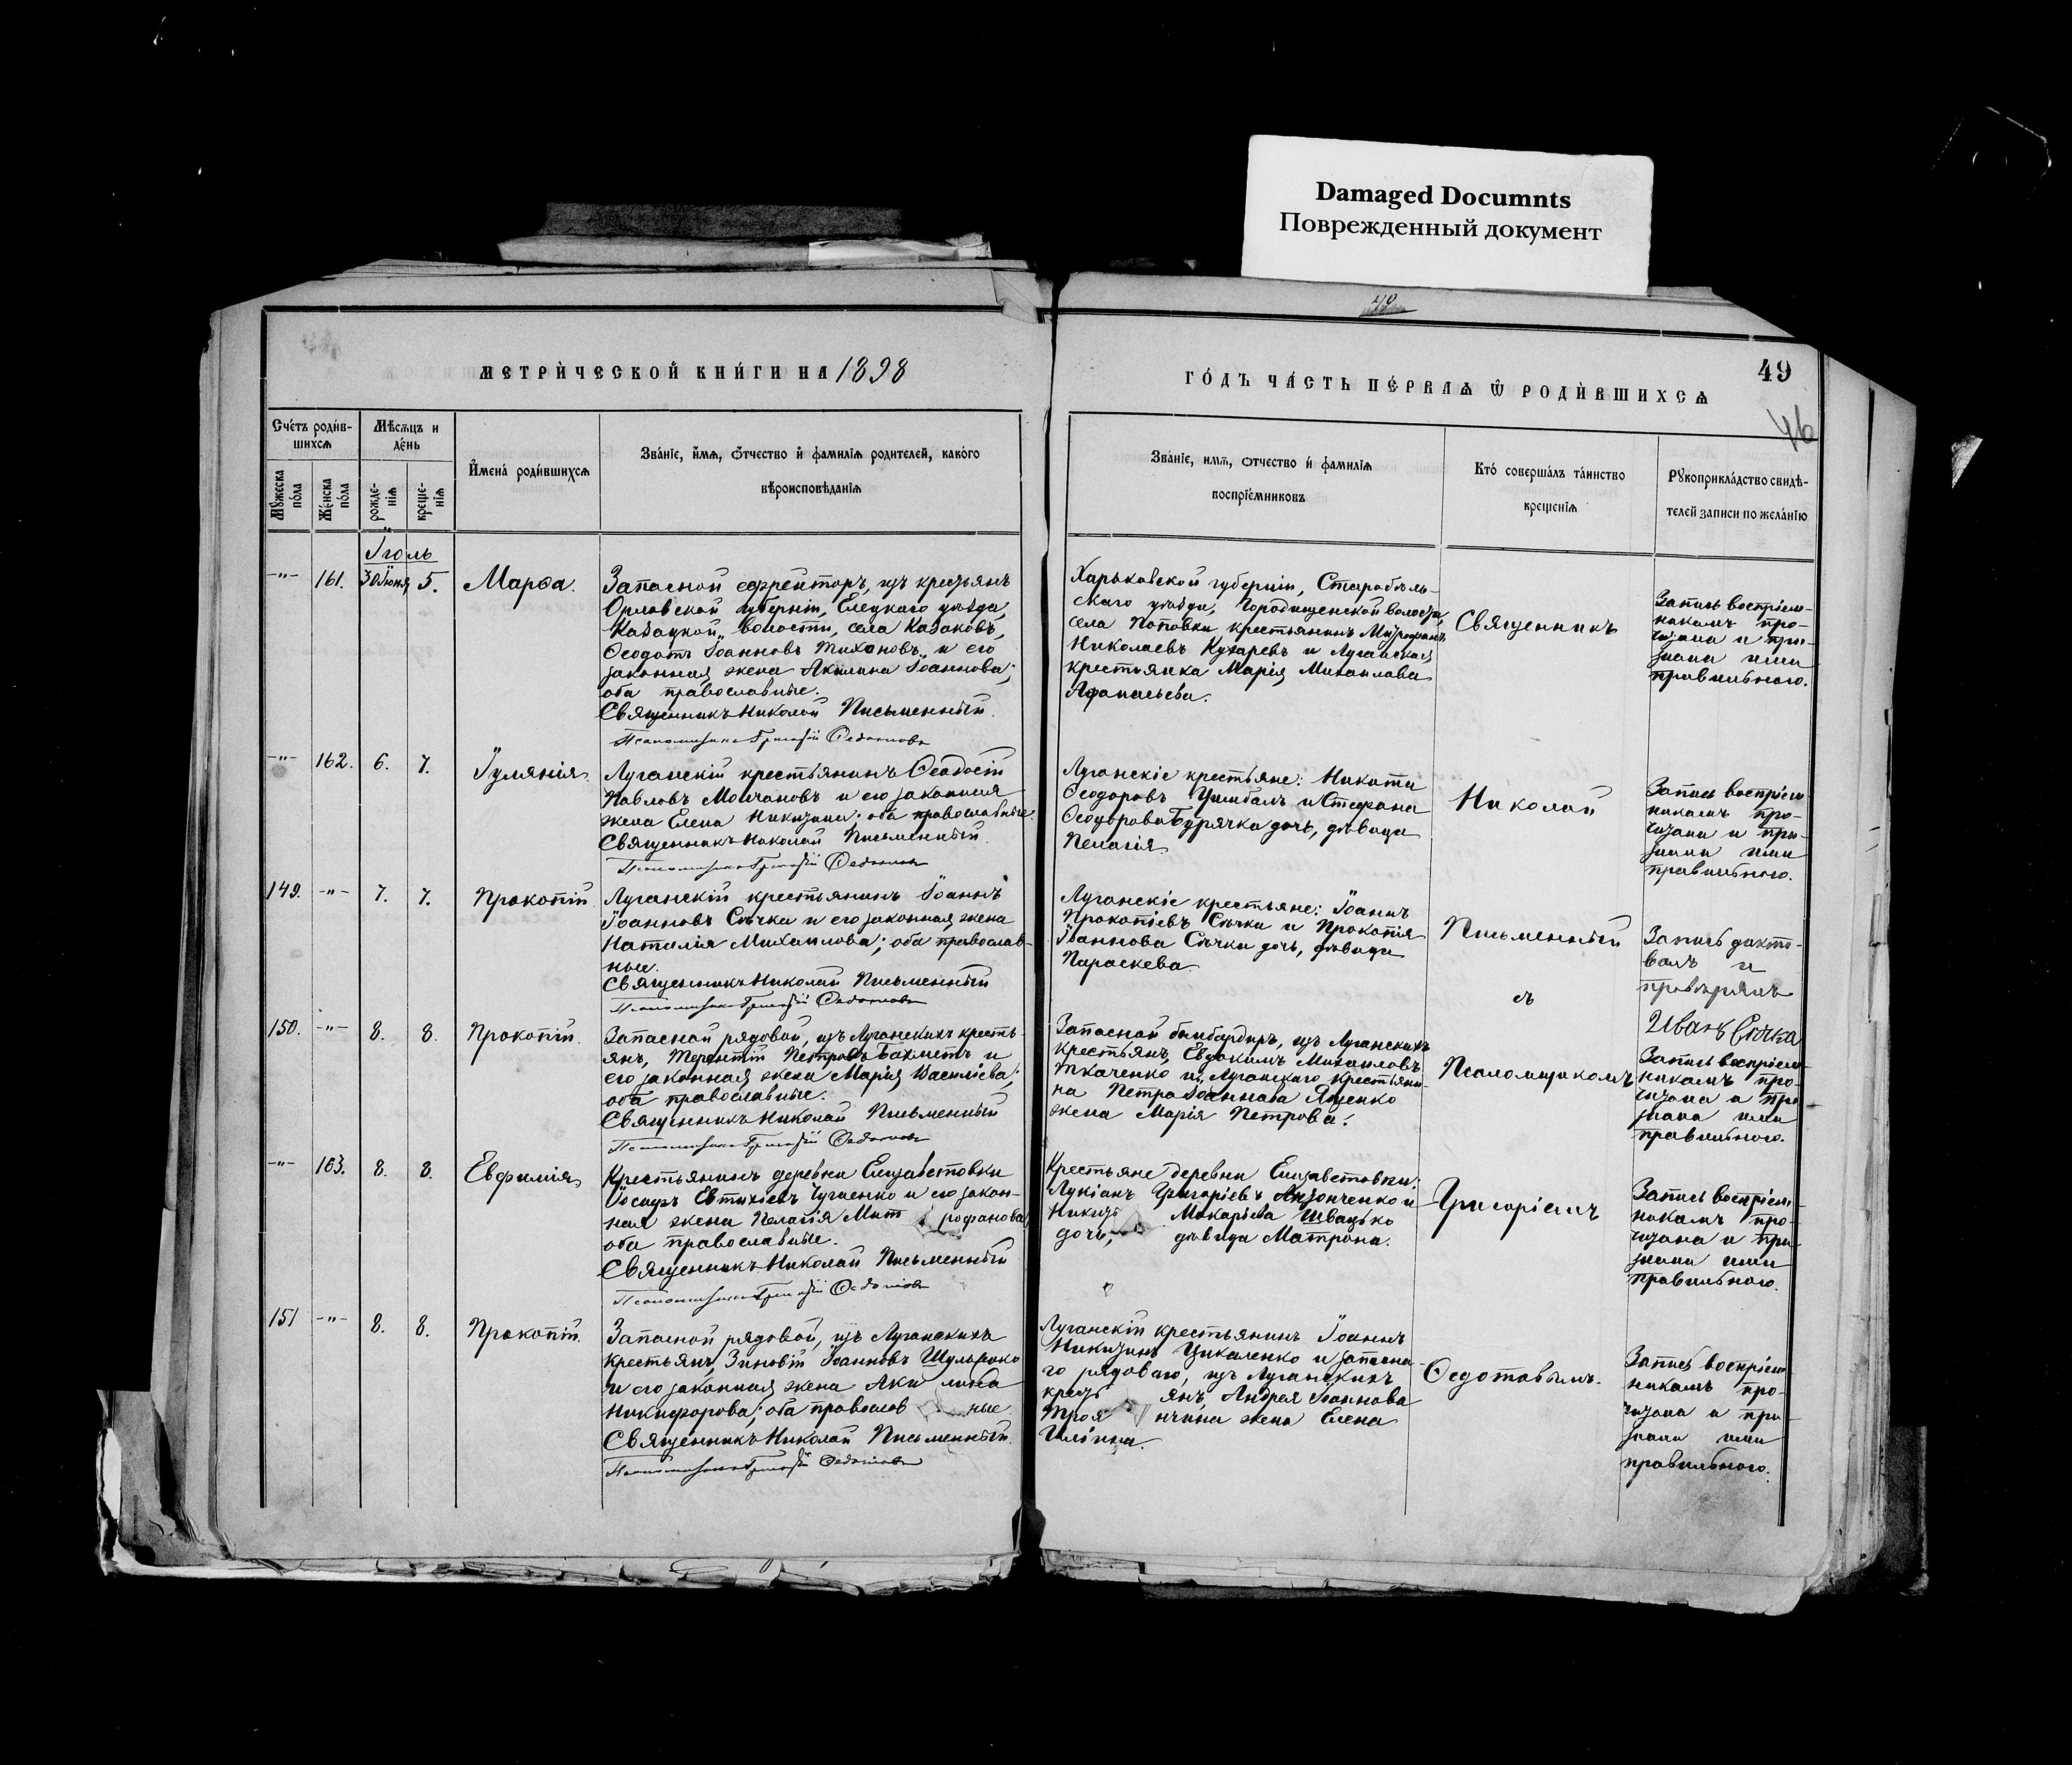 Damaged Documnts
Поврежденный документ
МЕТРИ́ЧЕСКОЙ КНИ́ГИ НА 1898
ГО́ДЪ ЧА́СТЬ ПЕ́РВАѦ Ѿ РОДИ́ВШИХСѦ
49
46
Сче́тъ роди́в-
шихсѧ
Мужеска
по́ла
Же́нска
по́ла
Мѣсѧцъ и
де́нь
рожде-
нїѧ
креще-
нїѧ
И҆мена́ роди́вшихсѧ
Зва́нїе, и҆́мѧ, ѻ҆́тчество и҆ фамилїѧ родителей, како́го
вѣроисповѣ́данїѧ
Зва́нїе, имѧ, ѻтчество и҆ фамилїѧ
воспрїе́мниковъ
Кто́ соверша́лъ та́инство
крещенїѧ
Рꙋкоприкла́дство свидѣ-
телей записи по жела́нїю
Іюль
-"- 161. 30 Іюня 5. Марѳа.
Запасной ефрейторъ, изъ крестьянъ
Орловской губерніи, Елецкаго уѣзда,
Казацкой волости, села Казаковъ,
Ѳеодотъ Іоанновъ Тихоновъ и его
законная жена Акилина Іоаннова;
оба православные.
Священникъ Николай Письменный.
Псаломщикъ Григорій Ѳедотовъ
Харьковской губерніи, Старобѣль-
скаго уѣзда, Городищенской волости,
села Поповки крестьянинъ Митрофанъ
Николаевъ Кухаревъ и Луганская
крестьянка Марія Михаилова
Аѳанасьева.
Священникъ
Запись воспріем-
никамъ про-
читана и при-
знана ими
правильного.
-"- 162. 6. 7. Іуліанія.
Луганскій крестьянинъ Ѳеодосій
Павловъ Молчановъ и его законная
жена Елена Никитина; оба православные.
Священникъ Николай Письменный.
Псаломщикъ Григорій Ѳедотовъ
Луганскіе крестьяне: Никита
Ѳеодоровъ Цымбалъ и Стефана
Ѳеодорова Бурячка дочь, дѣвица
Пелагія.
Николай
Запись воспріем-
никамъ про-
читана и при-
знана ими
правильного.
149. -"- 7. 7. Прокопій.
Луганскій крестьянинъ Іоаннъ
Іоанновъ Сѣчка и его законная жена
Наталія Михаилова; оба православ-
ные.
Священникъ Николай Письменный
Псаломщикъ Григорій Ѳедотовъ
Луганскіе крестьяне: Іоаннъ
Прокопіевъ Сѣчка и Прокопія
Іоаннова Сѣчки дочь, дѣвица
Параскева.
Письменный
съ
Запись дикто-
валъ и
провѣрялъ
Иванъ Сѣчка
150. -"- 8. 8. Прокопій.
Запасной рядовой, изъ Луганскихъ кресть-
янъ, Терентій Петровъ Бахметъ и
его законная жена Марія Васильева;
оба православные.
Священникъ Николай Письменный
Псаломщикъ Григорій Ѳедотовъ
Запасной бомбардиръ, изъ Луганскихъ
крестьянъ, Евдокимъ Михаиловъ
Ткаченко и Луганскаго крестьяни-
на Петра Іоаннова Яценко
жена Марія Петрова.
Псаломщикомъ
Запись воспріем-
никамъ про-
читана и при-
знана ими
правильного.
-"- 163. 8. 8. Евфимія.
Крестьянинъ деревни Елизаветовки
Іосифъ Евтихіевъ Чугаенко и его закон-
ная жена Пелагія Митрофанова;
оба православные.
Священникъ Николай Письменный
Псаломщикъ Григорій Ѳедотовъ
Крестьяне деревни Елизаветовки:
Лукіанъ Григоріевъ и
Макаріева Швацько
дочь, дѣвица Матрона.
Григоріемъ
Запись воспріем-
никамъ про-
читана и при-
знана ими
правильного.
151 -"- 8. 8. Прокопій.
Запасной рядовой, изъ Луганскихъ
крестьянъ, Зиновій Іоанновъ
и его законная жена Акилина
Никифорова; оба православные.
Священникъ Николай Письменный.
Псаломщикъ Григорій Ѳедотовъ
Луганскій крестьянинъ Іоаннъ
Никитинъ Цикаленко и запасна-
го рядоваго, изъ Луганскихъ
крестьянъ, Андрея Іоаннова
жена Елена
Ильина.
Ѳедотовымъ.
Запись воспріем-
никамъ про-
читана и при-
знана ими
правильного.